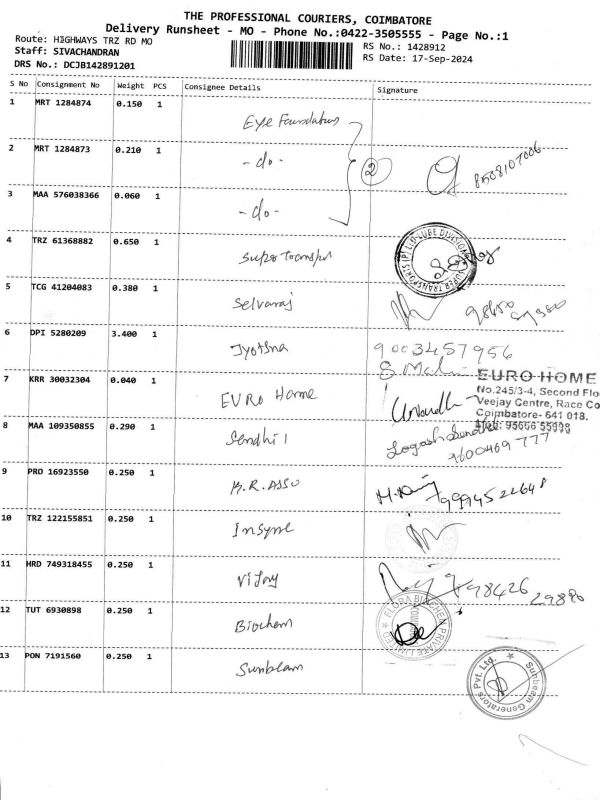 THE PROFESSIONAL COURIERS, COIMBATORE
Delivery Runsheet - MO - Phone No.:0422-3505555 - Page No.:1
Route: HIGHWAYS TRZ RD MO
RS No.: 1428912
Staff: SIVACHANDRAN
RS Date: 17-Sep-2024
DRS No.: DCJB142891201
S No Consignment No Weight PCS Consignee Details Signature
1 MRT 1284874 0.150 1 Eye Foundation
2 MRT 1284873 0.210 1 -do- 2 8508107006
3 MAA 576038366 0.060 1 -do-
4 TRZ 61368882 0.650 1 Super Transpor
5 TCG 41204083 0.380 1 Selvaraj
6 DPI 5280209 3.400 1 Jyotsna 9003457956
7 KRR 30032304 0.040 1 EURO Home
EURO HOME
No.245/3-4, Second Flo
Veejay Centre, Race Co
Coimbatore- 641 018.
8 MAA 109350855 0.290 1 Sendhil
9 PRO 16923550 0.250 1 K.R. ASSO
10 TRZ 122155851 0.250 1 Insyne
11 HRD 749318455 0.250 1 Vijay 98426 29890
12 TUT 6930898 0.250 1 Biochem
FLORA BIOCHEM PRIVATE LIMITED
13 PON 7191560 0.250 1 Sunbeam
Sunbeam Generators Pvt. Ltd.